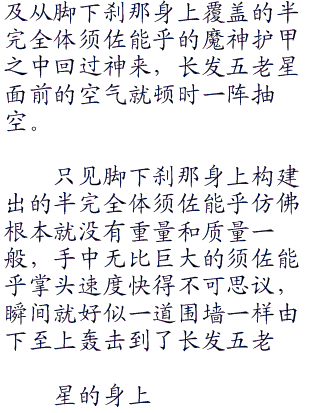 及从脚下刹那身上覆盖的半
完全体须佐能乎的魔神护甲
之中回过神来，长发五老星
面前的空气就顷时一阵抽
空。
只见脚下刹那身上构建
出的半完全体须佐能乎仿佛
根本就没有重量和质量一
般，手中无比巨大的须佐能
乎掌头速度快得不可思议，
瞬间就好似一道围墙一样由
下至上轰击到了长发五老
星的身上